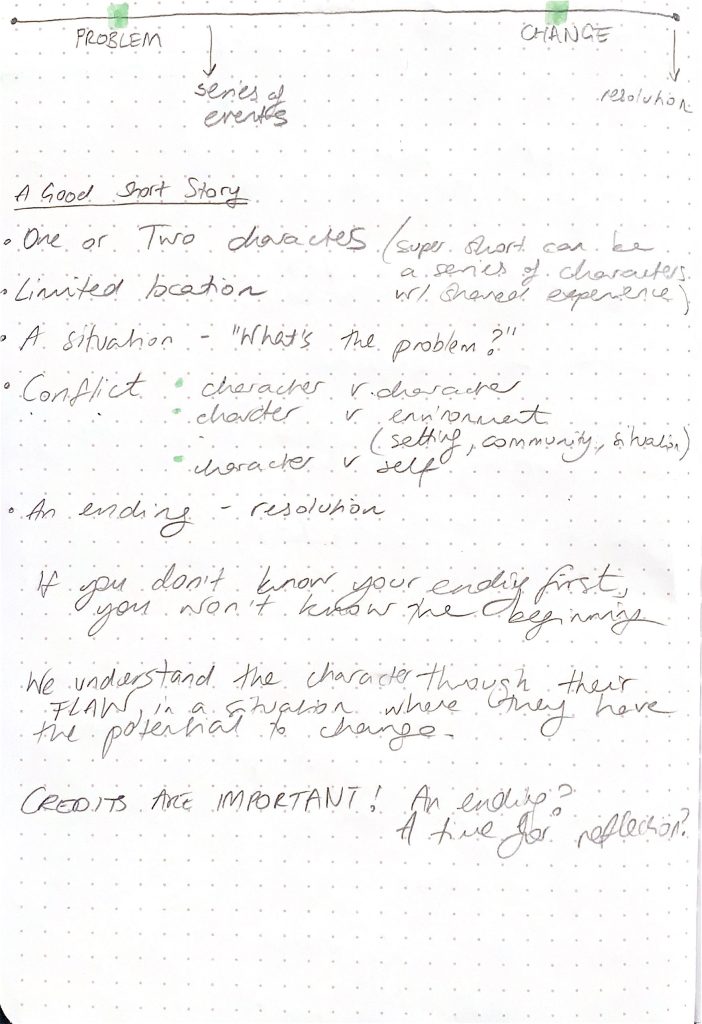 PROBLEM
CHANGE
series of
events
resolution
A Good Short Story
• One or Two characters (super short can be
a series of characters
w/ shared experience)
• Limited location
• A situation - "What's the problem?"
• Conflict • character v. character
• charcter v environment
(setting, community, situation)
• character v self
• An ending - resolution
If you don't know your ending first,
you won't know the beginning
We understand the character through their
FLAW, in a situation where they have
the potential to change.
CREDITS ARE IMPORTANT! An ending?
A time for reflection?